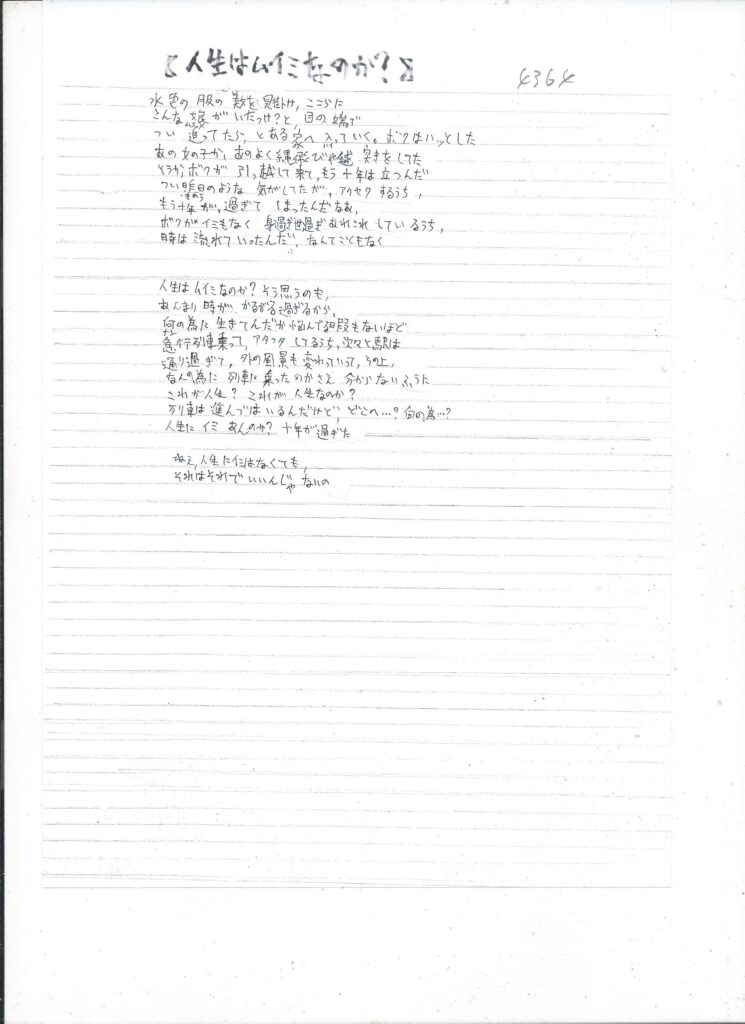 【人生はムイミなのか?】
4364
水色の服の 美女を 見掛け、ここらに
こんな 娘が いたっけ?と 目の端で
つい 追ってたら、とある 家へ 入っていく。ボクはハッとした
あの女の子か、あのよく縄飛びや毬突きをしてた
そうか、ボクが 引っ越して来て、もう十年は立つんだ
つい昨日のような 気がしてたが、アクセクするうち、
もう十年が、過ぎて しまったんだなあ、
ボクがイミもなく 身過ぎ世過ぎあれこれ しているうち、
時は 流れて いったんだ、なんてこともなく
人生は ムイミなのか?そう思うのも、
あんまり 時が かるがる過ぎるから、
何の為に 生きてんだか悩んでる暇もないほど
急行列車乗って、アタフタしてるうち、次々と駅は
通り過ぎて、外の風景も変わっていって、その上、
なんの為に 列車に 乗ったのかさえ 分からないふうに
これが人生? これが 人生なのか?
列車は 進んではいるんだけど、どこへ…?何の為…?
人生に イミ あんのか? 十年が過ぎた
ねえ、人生にイミはなくても、
それはそれで いいんじゃないの